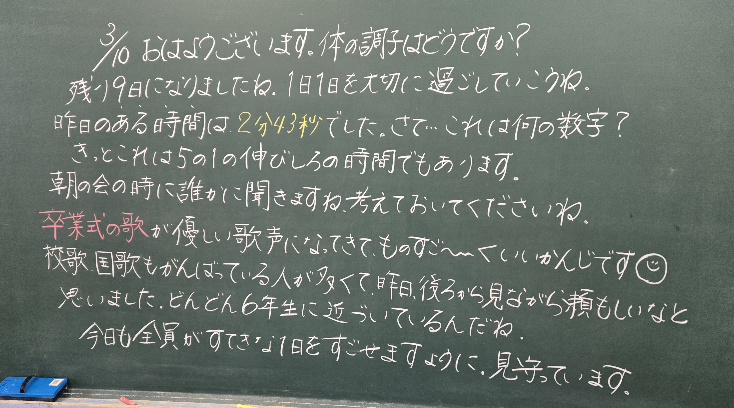 3/10 おはようございます。体の調子はどうですか?
残り9日になりましたね。1日1日を大切に過ごしていこうね。
昨日のある時間は、2分43秒でした。さて…これは何の数字?
きっとこれは5の1の伸びしろの時間でもあります。
朝の会の時に誰かに聞きますね、考えておいてくださいね。
卒業式の歌が優しい歌声になってきて、ものすご〜〜くいいかんじです☺
校歌、国歌もがんばっている人が多くて、昨日、後ろから見ながら頼もしいなと
思いました。どんどん6年生に近づいているんだね。
今日も全員がすてきな1日をすごせますように。見守っています。